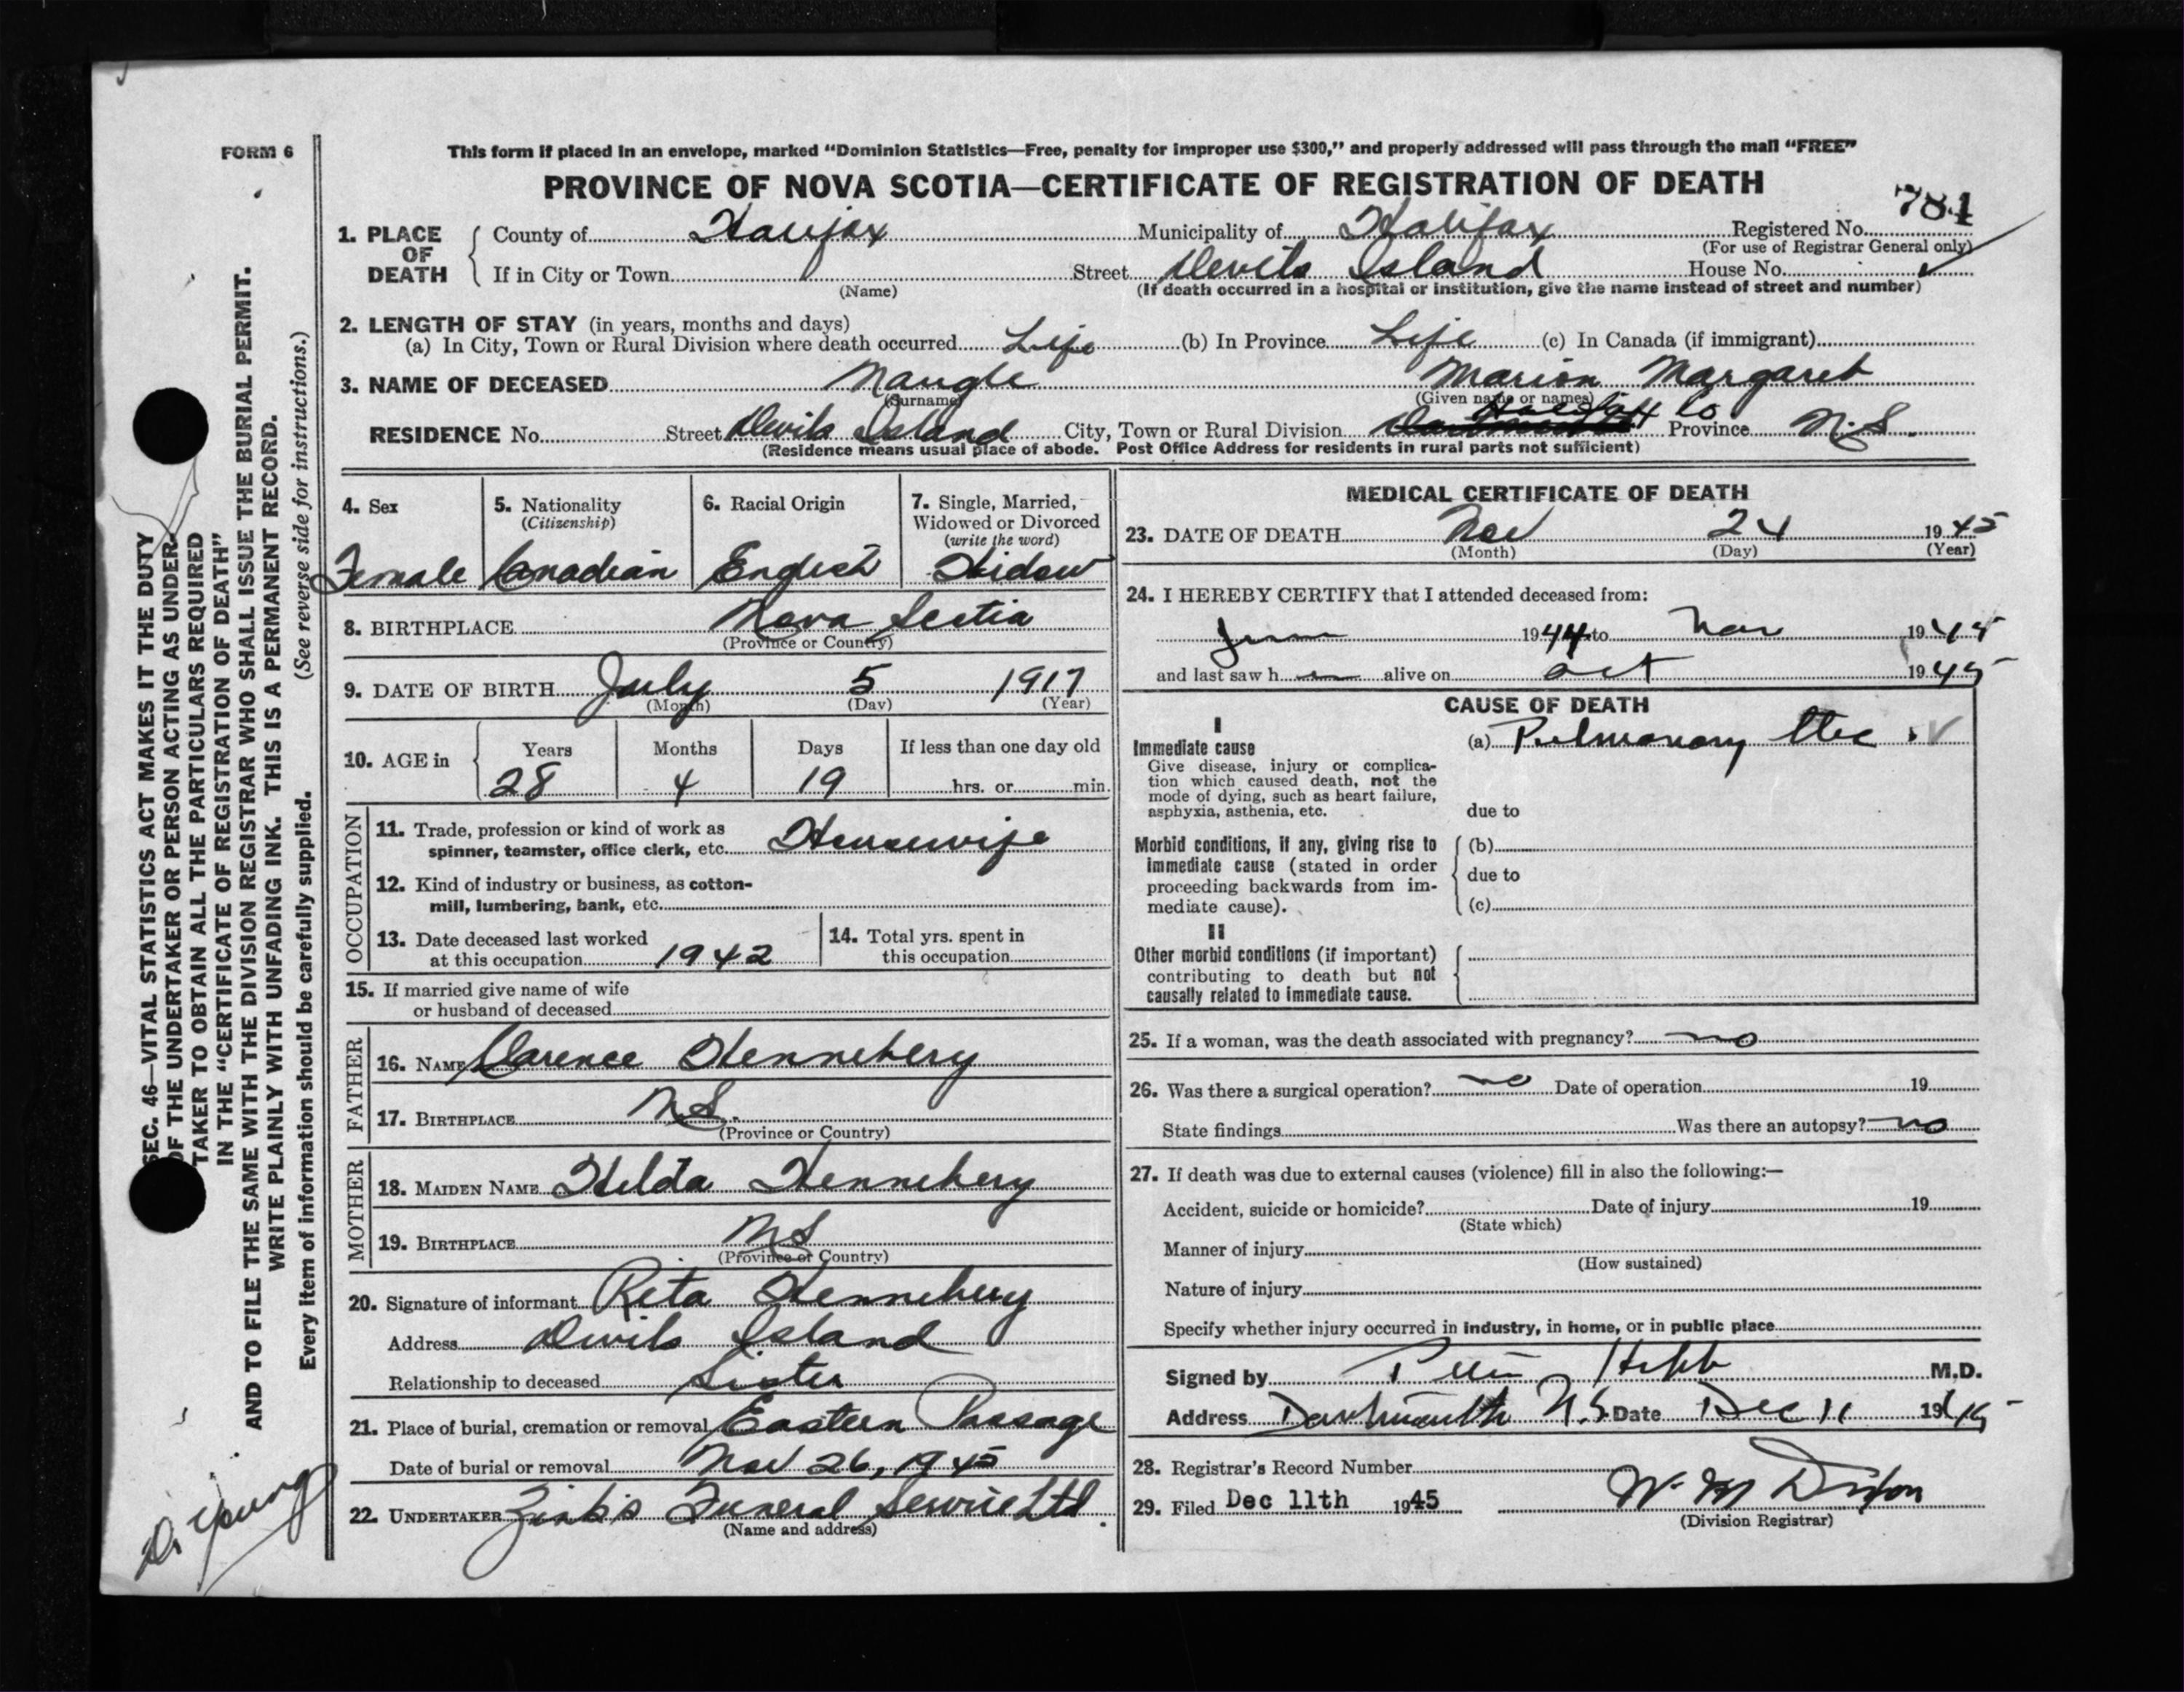 FORM 6
This form if placed in an envelope, marked “Dominion Statistics—Free, penalty for improper use $300,” and properly addressed will pass through the mail “FREE”
PROVINCE OF NOVA SCOTIA—CERTIFICATE OF REGISTRATION OF DEATH
784
1. PLACE OF DEATH
County of Halifax Municipality of Halifax Registered No.
(For use of Registrar General only)
If in City or Town Street Devils Island House No.
(Name) (If death occurred in a hospital or institution, give the name instead of street and number)
2. LENGTH OF STAY (in years, months and days)
(a) In City, Town or Rural Division where death occurred Life (b) In Province Life (c) In Canada (if immigrant)
3. NAME OF DECEASED Naugle Marion Margaret
(Surname) (Given name or names)
RESIDENCE No. Street Devils Island City, Town or Rural Division Halifax Co Province N.S.
(Residence means usual place of abode. Post Office Address for residents in rural parts not sufficient)
4. Sex
Female
5. Nationality
(Citizenship)
Canadian
6. Racial Origin
English
7. Single, Married,
Widowed or Divorced
(write the word)
Widow
8. BIRTHPLACE Nova Scotia
(Province or Country)
9. DATE OF BIRTH July 5 1917
(Month) (Day) (Year)
10. AGE in
Years Months Days If less than one day old
28 4 19 hrs. or min.
OCCUPATION
11. Trade, profession or kind of work as
spinner, teamster, office clerk, etc. Housewife
12. Kind of industry or business, as cotton-
mill, lumbering, bank, etc.
13. Date deceased last worked
at this occupation 1942
14. Total yrs. spent in
this occupation
15. If married give name of wife
or husband of deceased
FATHER
16. NAME Clarence Henneberry
17. BIRTHPLACE N.S.
(Province or Country)
MOTHER
18. MAIDEN NAME Hilda Henneberry
19. BIRTHPLACE N S
(Province or Country)
20. Signature of informant Rita Henneberry
Address Devils Island
Relationship to deceased Sister
21. Place of burial, cremation or removal Eastern Passage
Date of burial or removal Nov 26, 1945
22. UNDERTAKER Zink's Funeral Service Ltd.
(Name and address)
MEDICAL CERTIFICATE OF DEATH
23. DATE OF DEATH Nov 24 1945
(Month) (Day) (Year)
24. I HEREBY CERTIFY that I attended deceased from:
June 1944 to Nov 1945
and last saw h alive on Oct 1945
CAUSE OF DEATH
I
Immediate cause
Give disease, injury or complica-
tion which caused death, not the
mode of dying, such as heart failure,
asphyxia, asthenia, etc.
(a) Pulmonary
due to
Morbid conditions, if any, giving rise to
immediate cause (stated in order
proceeding backwards from im-
mediate cause).
(b)
due to
(c)
II
Other morbid conditions (if important)
contributing to death but not
causally related to immediate cause.
25. If a woman, was the death associated with pregnancy? no
26. Was there a surgical operation? no Date of operation 19
State findings Was there an autopsy? no
27. If death was due to external causes (violence) fill in also the following:—
Accident, suicide or homicide? Date of injury 19
(State which)
Manner of injury
(How sustained)
Nature of injury
Specify whether injury occurred in industry, in home, or in public place
Signed by Hebb M.D.
Address Dartmouth N.S. Date Dec 11 1945
28. Registrar's Record Number
29. Filed Dec 11th 1945 W. M Dixon
(Division Registrar)
SEC. 46—VITAL STATISTICS ACT MAKES IT THE DUTY
OF THE UNDERTAKER OR PERSON ACTING AS UNDER-
TAKER TO OBTAIN ALL THE PARTICULARS REQUIRED
IN THE “CERTIFICATE OF REGISTRATION OF DEATH”
AND TO FILE THE SAME WITH THE DIVISION REGISTRAR WHO SHALL ISSUE THE BURIAL PERMIT.
WRITE PLAINLY WITH UNFADING INK. THIS IS A PERMANENT RECORD.
Every item of information should be carefully supplied. (See reverse side for instructions.)
Young